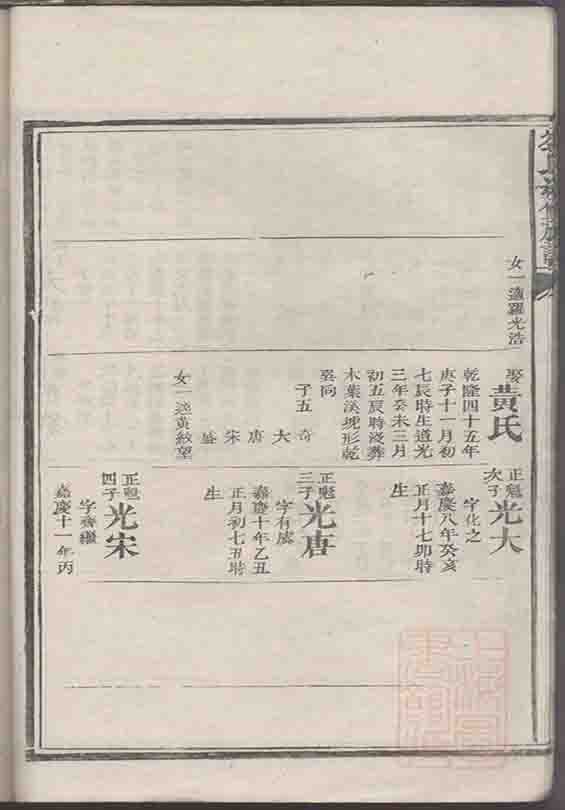 女一適羅光浩
娶黄氏
乾隆四十五年
庚子十一月初
七辰時生道光
三年癸未三月
初五辰時歿葬
木葉渓坤形乾
巽向
子五 奇
大
唐
宋
盛
女一適黄紋望
正魁次子光大
字化之
嘉慶八年癸亥
正月十七卯時
生
正魁三子光唐
字有虞
嘉慶十年乙丑
正月初七丑時
生
正魁四子光宋
字齊繼
嘉慶十一年丙